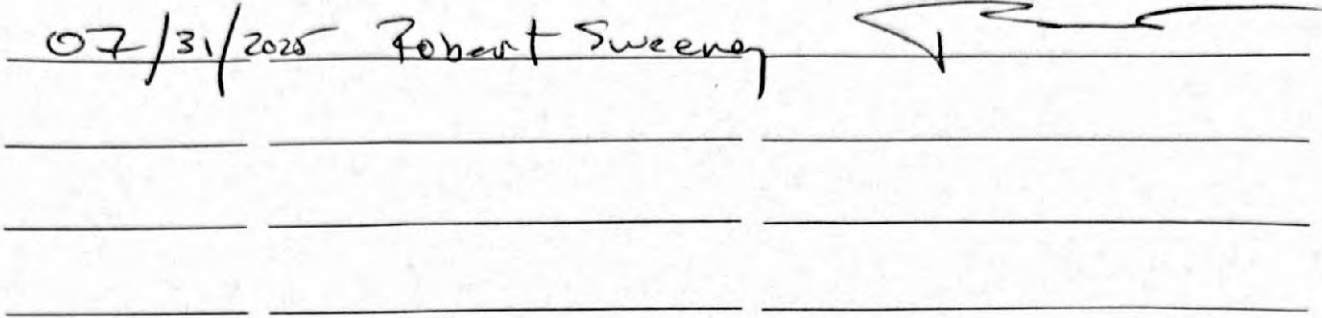 07/31/2025 Robert Sweeney